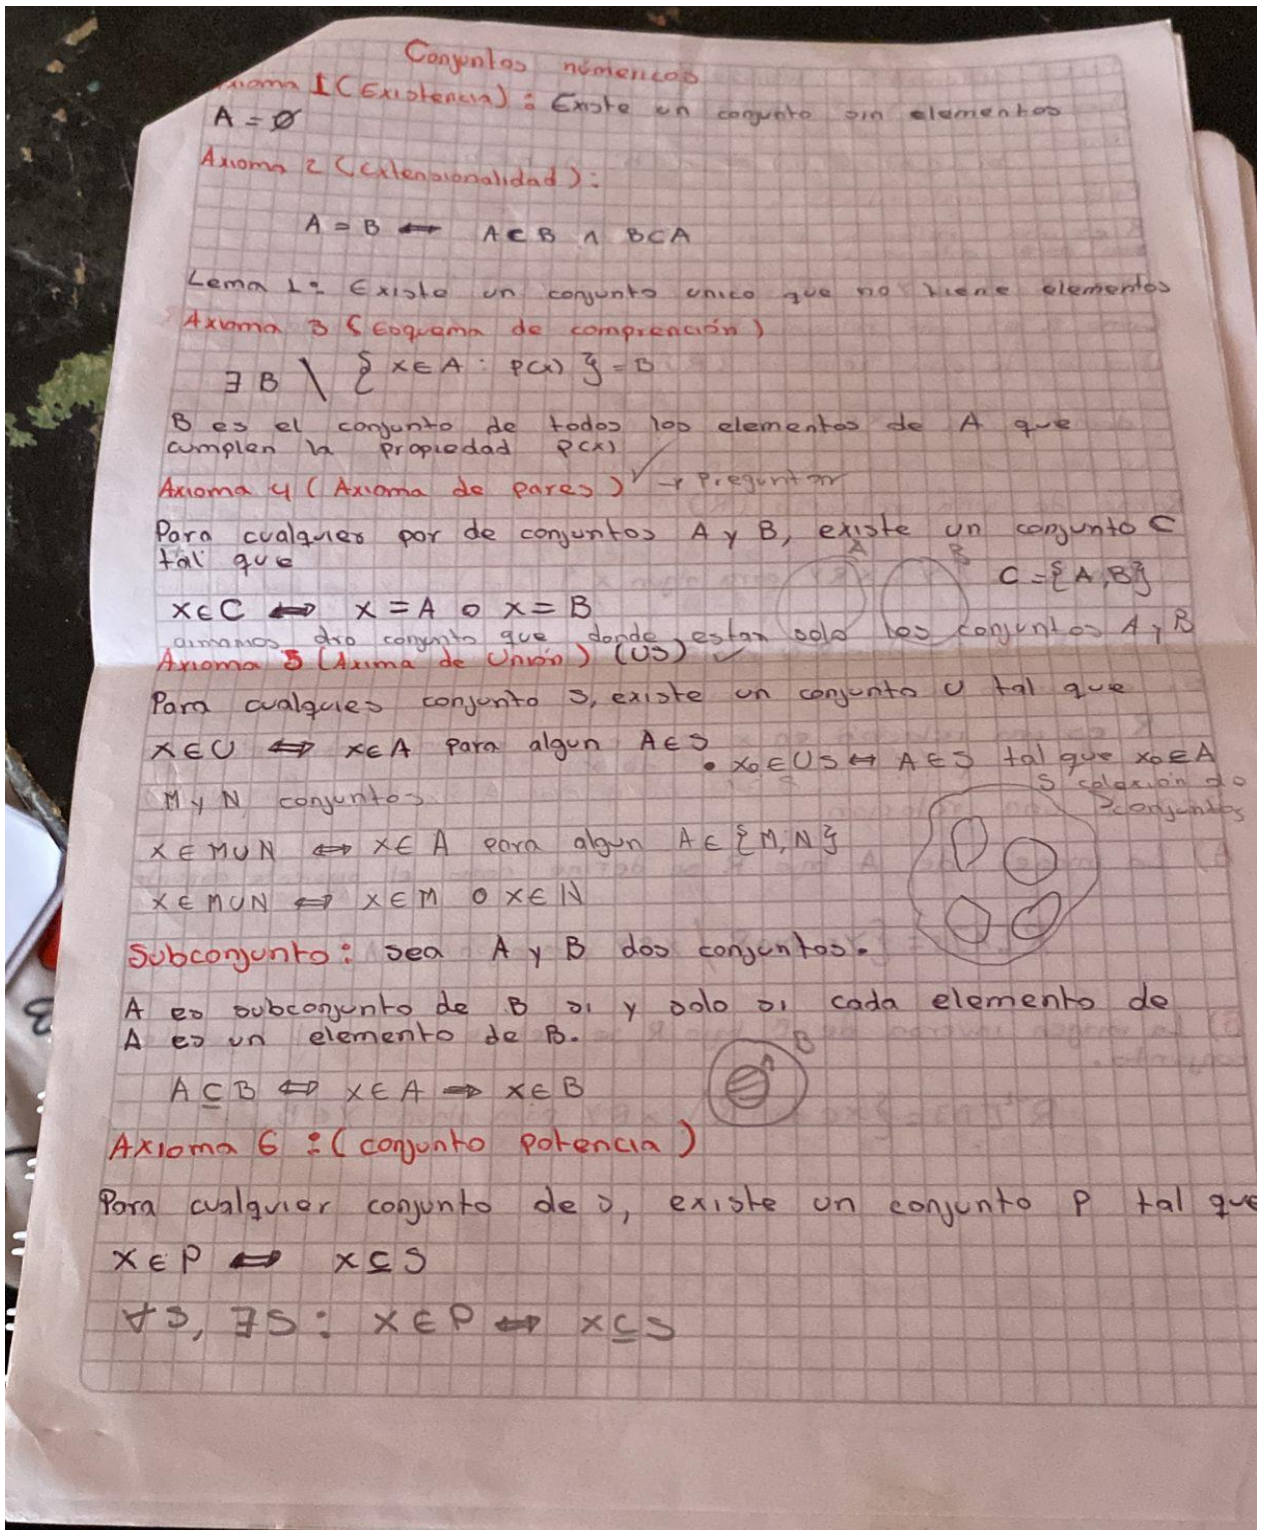 Conjuntos númericos
xioma 1 (Existencia): Existe un conjunto sin elementos
A = ∅
Axioma 2 (extensionalidad):
A = B ↔ A⊂B ∧ B⊂A
Lema 1: Existe un conjunto unico que no tiene elementos
Axioma 3 (Esquema de comprención)
∃ B \ { x∈A : P(x) } = B
B es el conjunto de todos los elementos de A que
cumplen la propiedad P(x)
Axioma 4 (Axioma de pares) ✓ → Preguntar
Para cualquier par de conjuntos A y B, existe un conjunto C
tal que
A B
C = {A,B}
x∈C ⇔ x = A o x = B
otro conjunto que donde estan solo los conjuntos A y B
Axioma 5 (Axima de Unión) (US) ✓
Para cualquies conjunto S, existe un conjunto U tal que
x∈U ⇔ x∈A para algun A∈S
• x₀∈US ↔ A∈S tal que x₀∈A
S colexion de
conjuntos
M y N conjuntos
x∈MUN ⇔ x∈A para algun A∈{M,N}
x∈MUN ⇔ x∈M o x∈N
Subconjunto: sea A y B dos conjuntos.
A es subconjunto de B si y solo si cada elemento de
A es un elemento de B.
A B
A⊆B ⇔ x∈A ⇒ x∈B
Axioma 6 : (conjunto potencia)
Para cualquier conjunto de s, existe un conjunto P tal que
x∈P ⇔ x⊆S
∀S, ∃S : x∈P ⇔ x⊆S